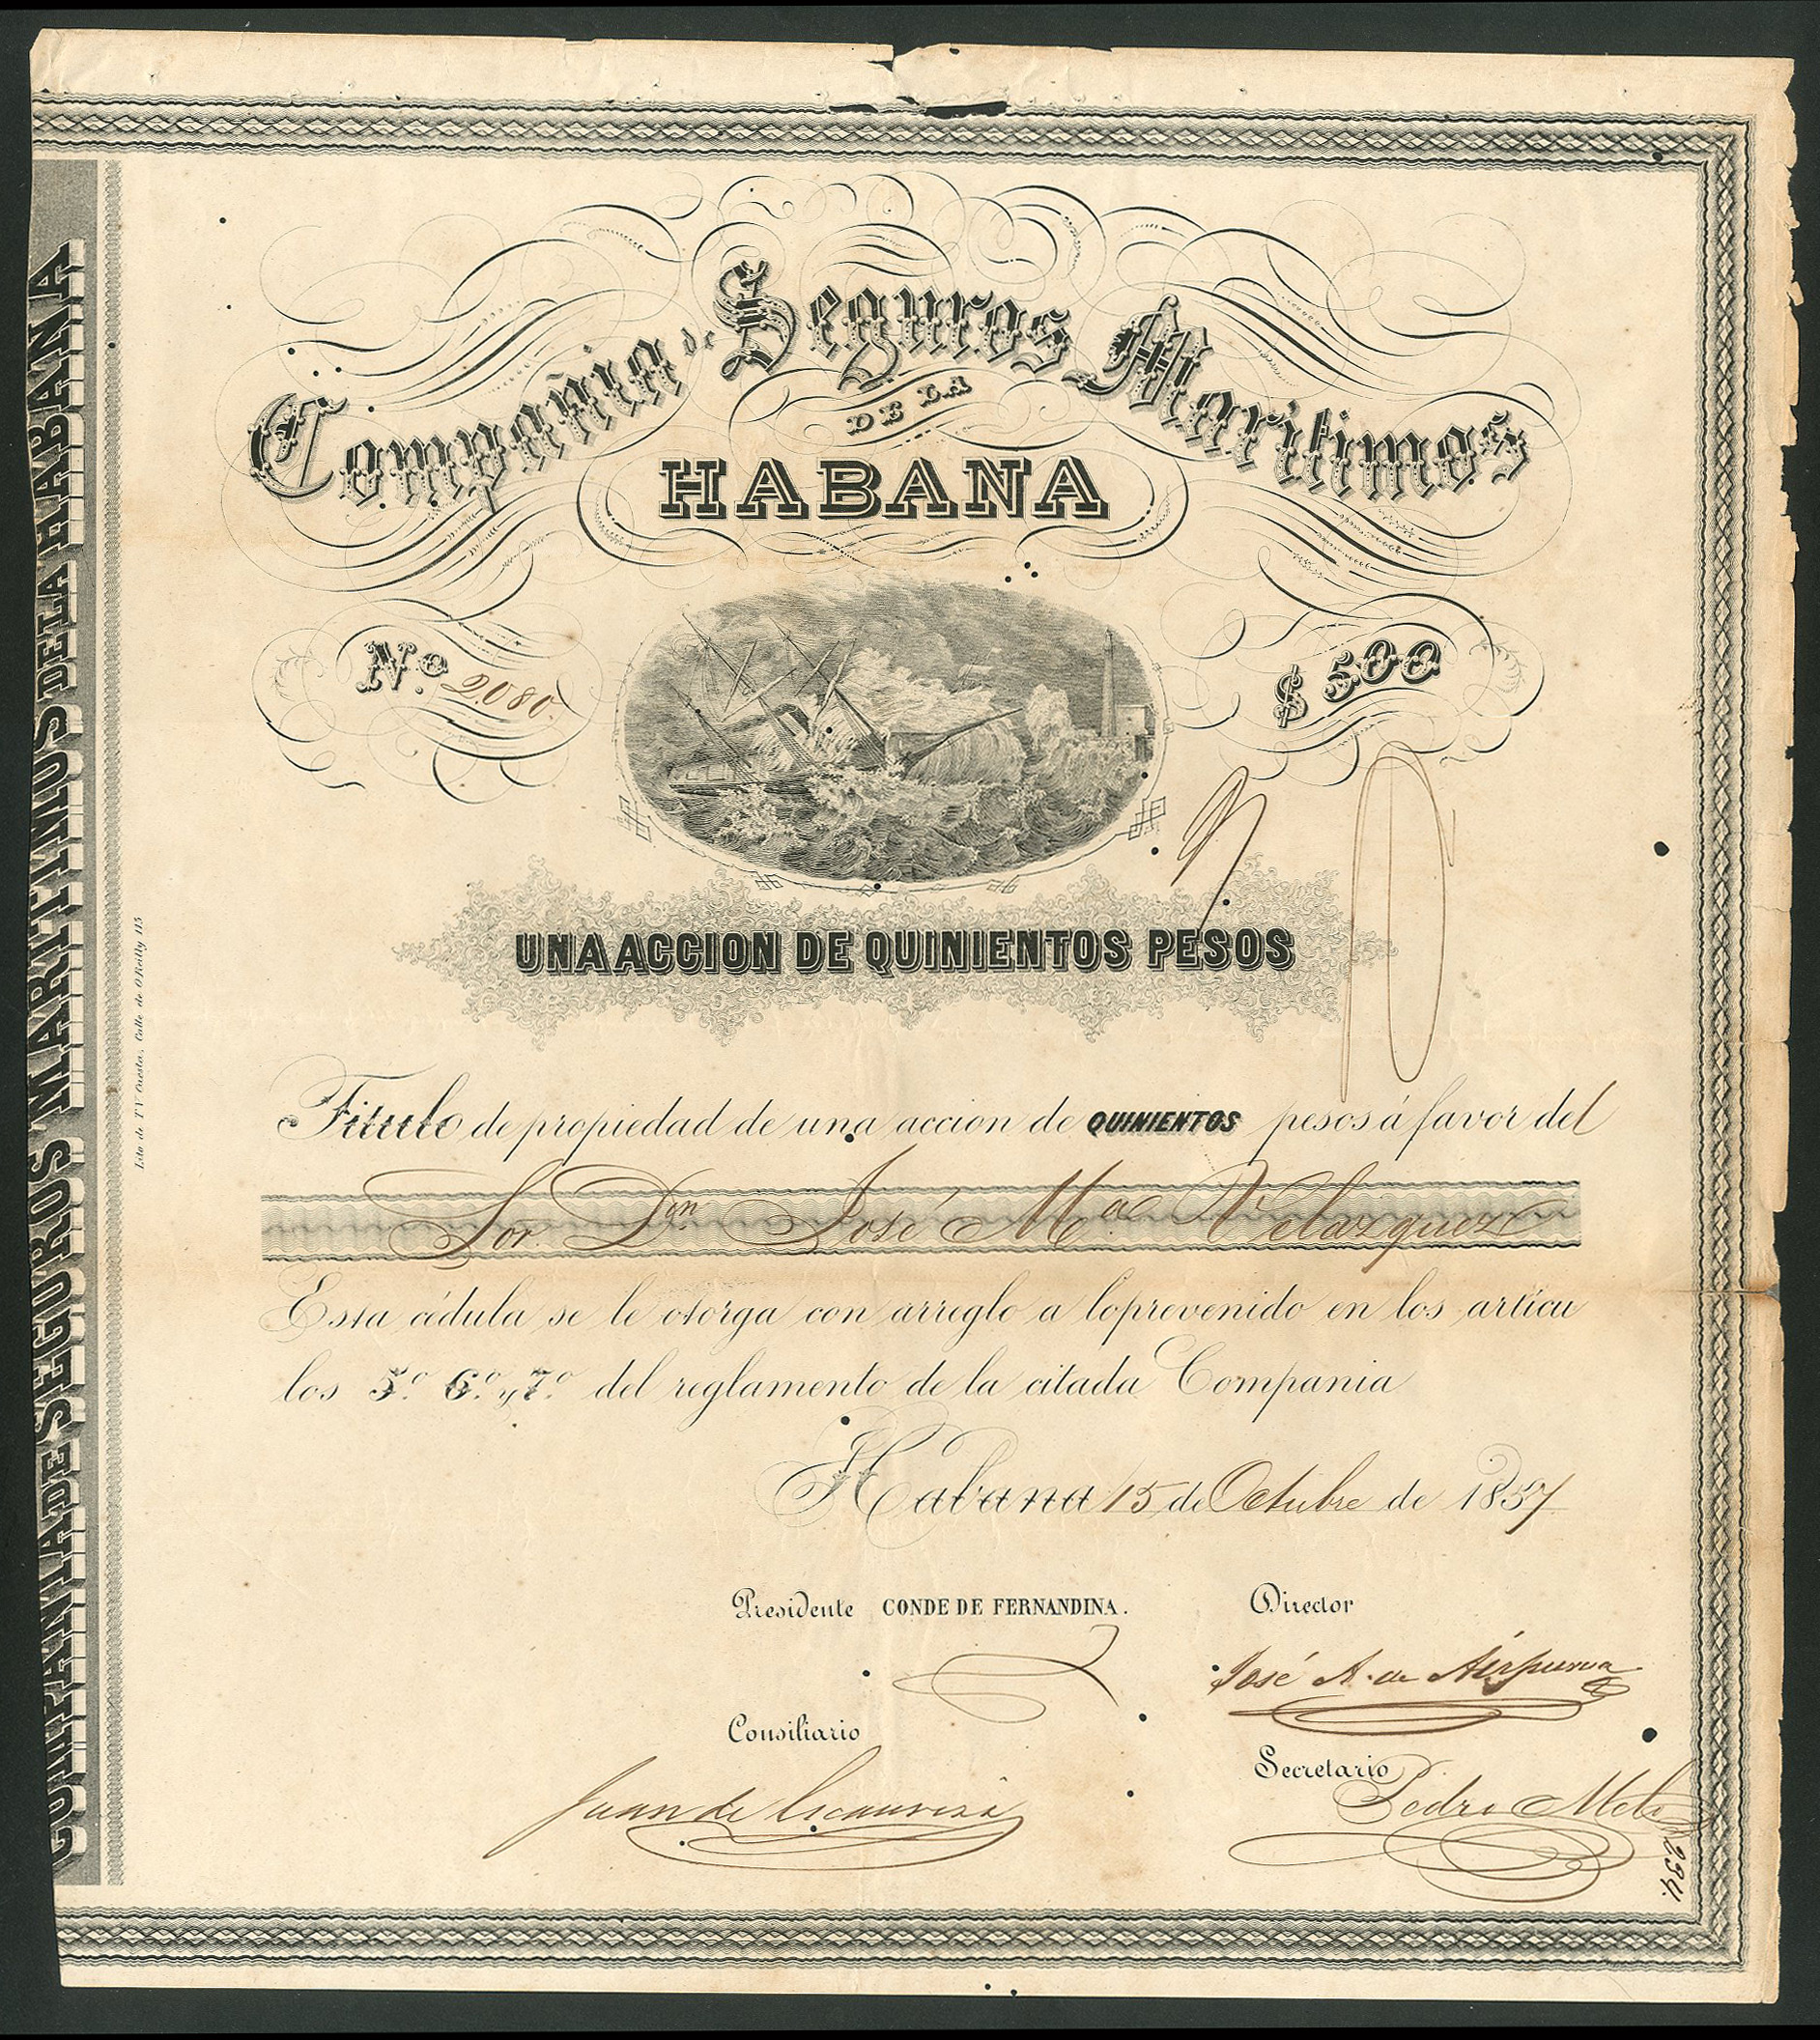 Compañia de Seguros Marítimos
DE LA
HABANA
Nº. 2080.
$ 500
UNA ACCION DE QUINIENTOS PESOS
Titulo de propiedad de una accion de QUINIENTOS pesos á favor del
Sor. Dn. José Ma. Velazquez
Esta cédula se le otorga con arreglo a loprevenido en los artícu
los 5º. 6º. y 7º. del reglamento de la citada Compania
Habana 15 de Octubre de 1857
Presidente CONDE DE FERNANDINA.
Director
José A. de
Consiliario
Juan de
Secretario
Pedro
234.
COMPAÑIA DE SEGUROS MARITIMOS DE LA HABANA
Lito de T. y Cuesta, Calle de O'Reilly 115